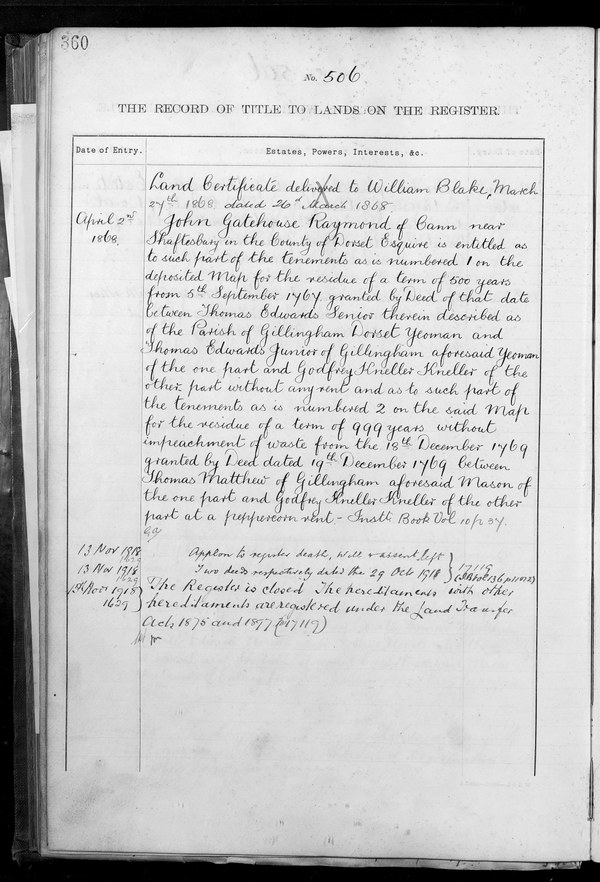 360
No. 506
THE RECORD OF TITLE TO LANDS ON THE REGISTER.
Date of Entry. Estates, Powers, Interests, &c.
Land Certificate delivered to William Blake, March
27th 1868 dated 26th March 1868
April 2nd John Gatehouse Raymond of Cann near
1868. Shaftesbury in the County of Dorset Esquire is entitled as
to such part of the tenements as is numbered 1 on the
deposited Map for the residue of a term of 500 years
from 5th September 1767 granted by Deed of that date
between Thomas Edwards Senior therein described as
of the Parish of Gillingham Dorset Yeoman and
Thomas Edwards Junior of Gillingham aforesaid Yeoman
of the one part and Godfrey Kneller Kneller of the
other part without any rent and as to such part of
the tenements as is numbered 2 on the said Map
for the residue of a term of 999 years without
impeachment of waste from the 18th December 1769
granted by Deed dated 19th December 1769 between
Thomas Matthew of Gillingham aforesaid Mason of
the one part and Godfrey Kneller Kneller of the other
part at a peppercorn rent - Instt Book Vol 10 p 37.
13 Nov 1918 Applon to register death, will & absent left
1629
13 Nov 1918 Two deeds respectively dated the 29 Oct 1918 17119
1629
15th Nov 1918 The Register is closed The hereditaments with other
1629 hereditaments are registered under the Land Transfer
Acts 1875 and 1897 (17119)